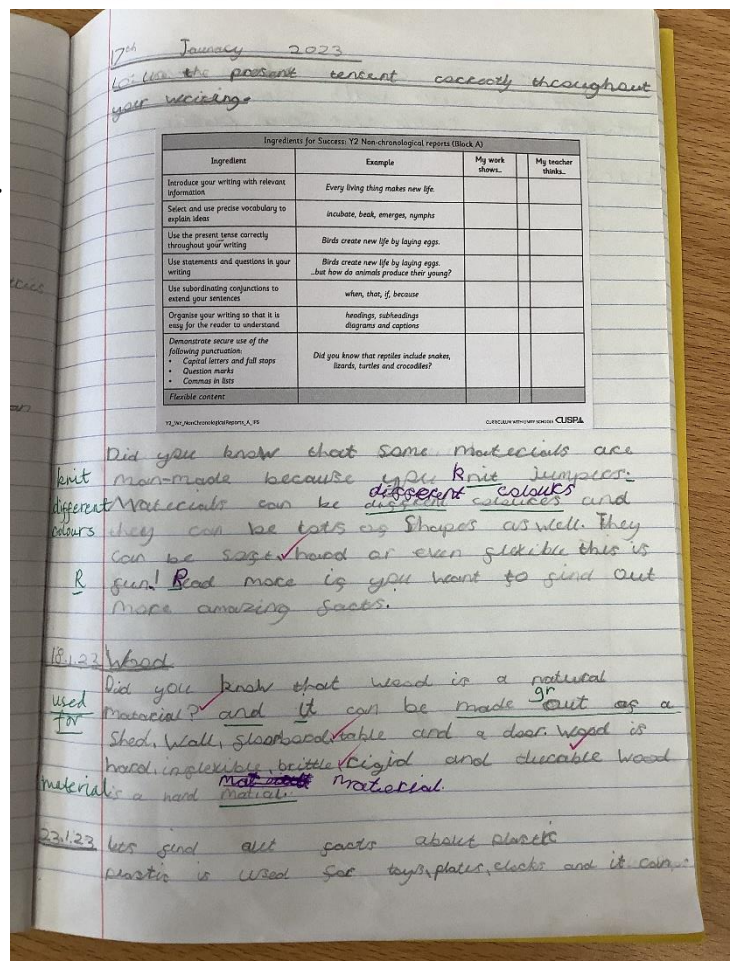 17th January 2023
Lo: Use the present tensent correctly throughout
your writing.
Ingredients for Success: Y2 Non-chronological reports (Block A)
Ingredient Example My work shows... My teacher thinks...
Introduce your writing with relevant information Every living thing makes new life.
Select and use precise vocabulary to explain ideas incubate, beak, emerges, nymphs
Use the present tense correctly throughout your writing Birds create new life by laying eggs.
Use statements and questions in your writing Birds create new life by laying eggs. ...but how do animals produce their young?
Use subordinating conjunctions to extend your sentences when, that, if, because
Organise your writing so that it is easy for the reader to understand headings, subheadings diagrams and captions
Demonstrate secure use of the following punctuation: Did you know that reptiles include snakes, lizards, turtles and crocodiles?
• Capital letters and full stops
• Question marks
• Commas in lists
Flexible content
Y2_Wr_NonChronologicalReports_A_IFS CURRICULUM WITH UNITY SCHOOLS CUSP
Did you know that some materials are
knit man-made because you knit jumpers.
different colours
different Materials can be different and
colours they can be lots of Shapes as well. They
can be soft, hard or even flexible this is
R fun! Read more if you want to find out
more amazing facts.
18.1.23 Wood
Did you know that wood is a natural
used material? and it can be made out of a
for
Shed, Wall, floorboard, table and a door. Wood is
hard, inflexible, brittle, rigid and durable wood
material is a hard matial. material.
23.1.23 lets find out facts about plastic
plastic is used for toys, plates, clocks and it can